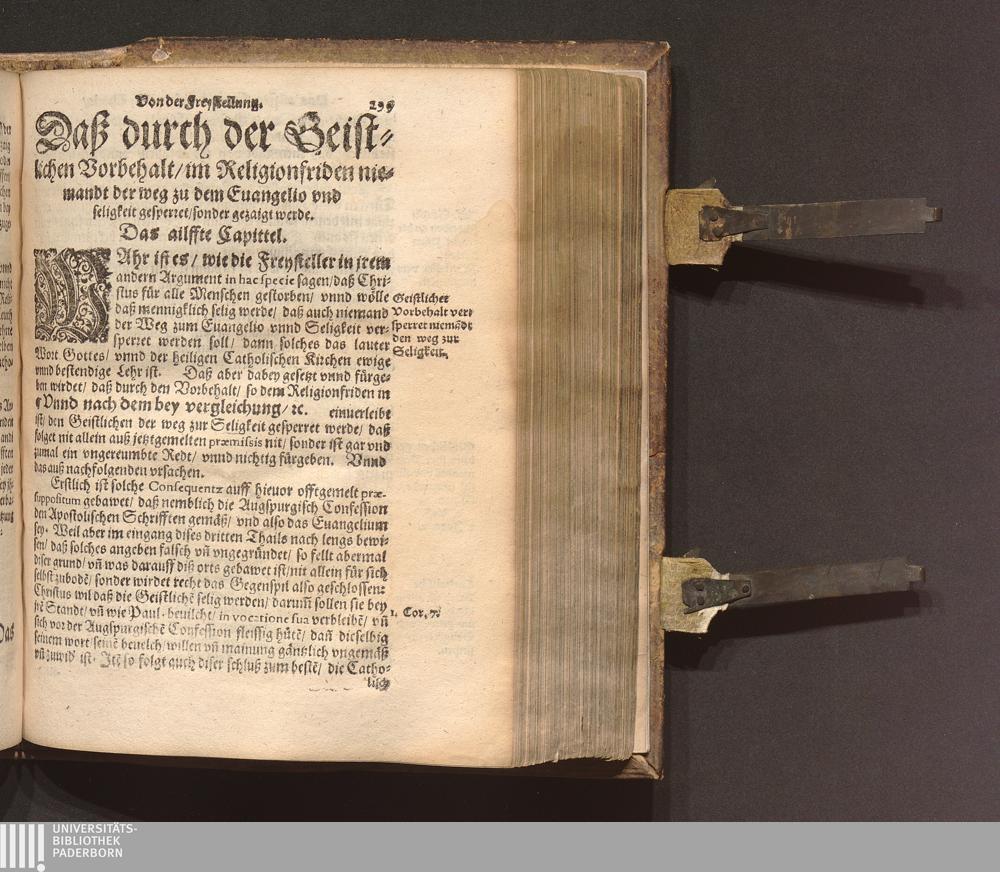 Von der Freystellung.
Daß durch der Geist-
lichen Vorbehalt/im Religionfriden nie-
mandt der weg zu dem Euangelio vnd
seligkeit gesperret/sonder gezaigt werde.
Das ailffte Capittel.
WAhr ist es/ wie die Freysteller in jrem
andern Argument in hac specie sagen/daß Chri-
stus für alle Menschen gestorben/ vnnd wölle
daß mennigklich selig werde/ daß auch niemand
der Weg zum Euangelio vnnd Seligkeit ver-
sperret werden soll/ dann solches das lauter
Wort Gottes/ vnnd der heiligen Catholischen Kirchen ewige
vnnd bestendige Lehr ist. Daß aber dabey gesetzt vnnd fürge-
ben wirdet/ daß durch den Vorbehalt/ so dem Religionfriden in
§ Vnnd nach dem bey vergleichung/ ꝛc. einuerleibt
ist/ den Geistlichen der weg zur Seligkeit gesperret werde/ daß
folget nit allein auß jetztgemelten præmissis nit/ sonder ist gar vnd
zumal ein vngereumbte Redt/ vnnd nichtig fürgeben. Vnnd
das auß nachfolgenden vrsachen.
Geistlicher
Vorbehalt ver-
sperret niemādt
den weg zur
Seligkeit.
Erstlich ist solche Consequentz auff hieuor offtgemelt præ-
suppositum gebawet/ daß nemblich die Augspurgisch Confession
den Apostolischen Schrifften gemäß/ vnd also das Euangelium
sey. Weil aber im eingang dises dritten Thails nach lengs bewi-
sen/ daß solches angeben falsch vn̄ vngegründet/ so fellt abermal
diser grund/ vn̄ was darauff diß orts gebawet ist/nit allein für sich
selbst zubodē/ sonder wirdet recht das Gegenspil also geschlossen:
Christus wil daß die Geistlichē selig werden/ darum̄ sollen sie bey
jrē Standt/ vn̄ wie Paul. beuilcht/ in vocatione sua verbleibē/ vn̄
sich vor der Augspurgischē Confession fleissig hütē/ dan̄ dieselbig
seinem wort/seinē beuelch/willen vn̄ mainung gäntzlich vngemäß
vn̄ zuwid' ist. Itē so folgt auch diser schluß zum bestē/ die Catho-
lisch
1. Cor. 7.
Das
UNIVERSITÄTS-
BIBLIOTHEK
PADERBORN